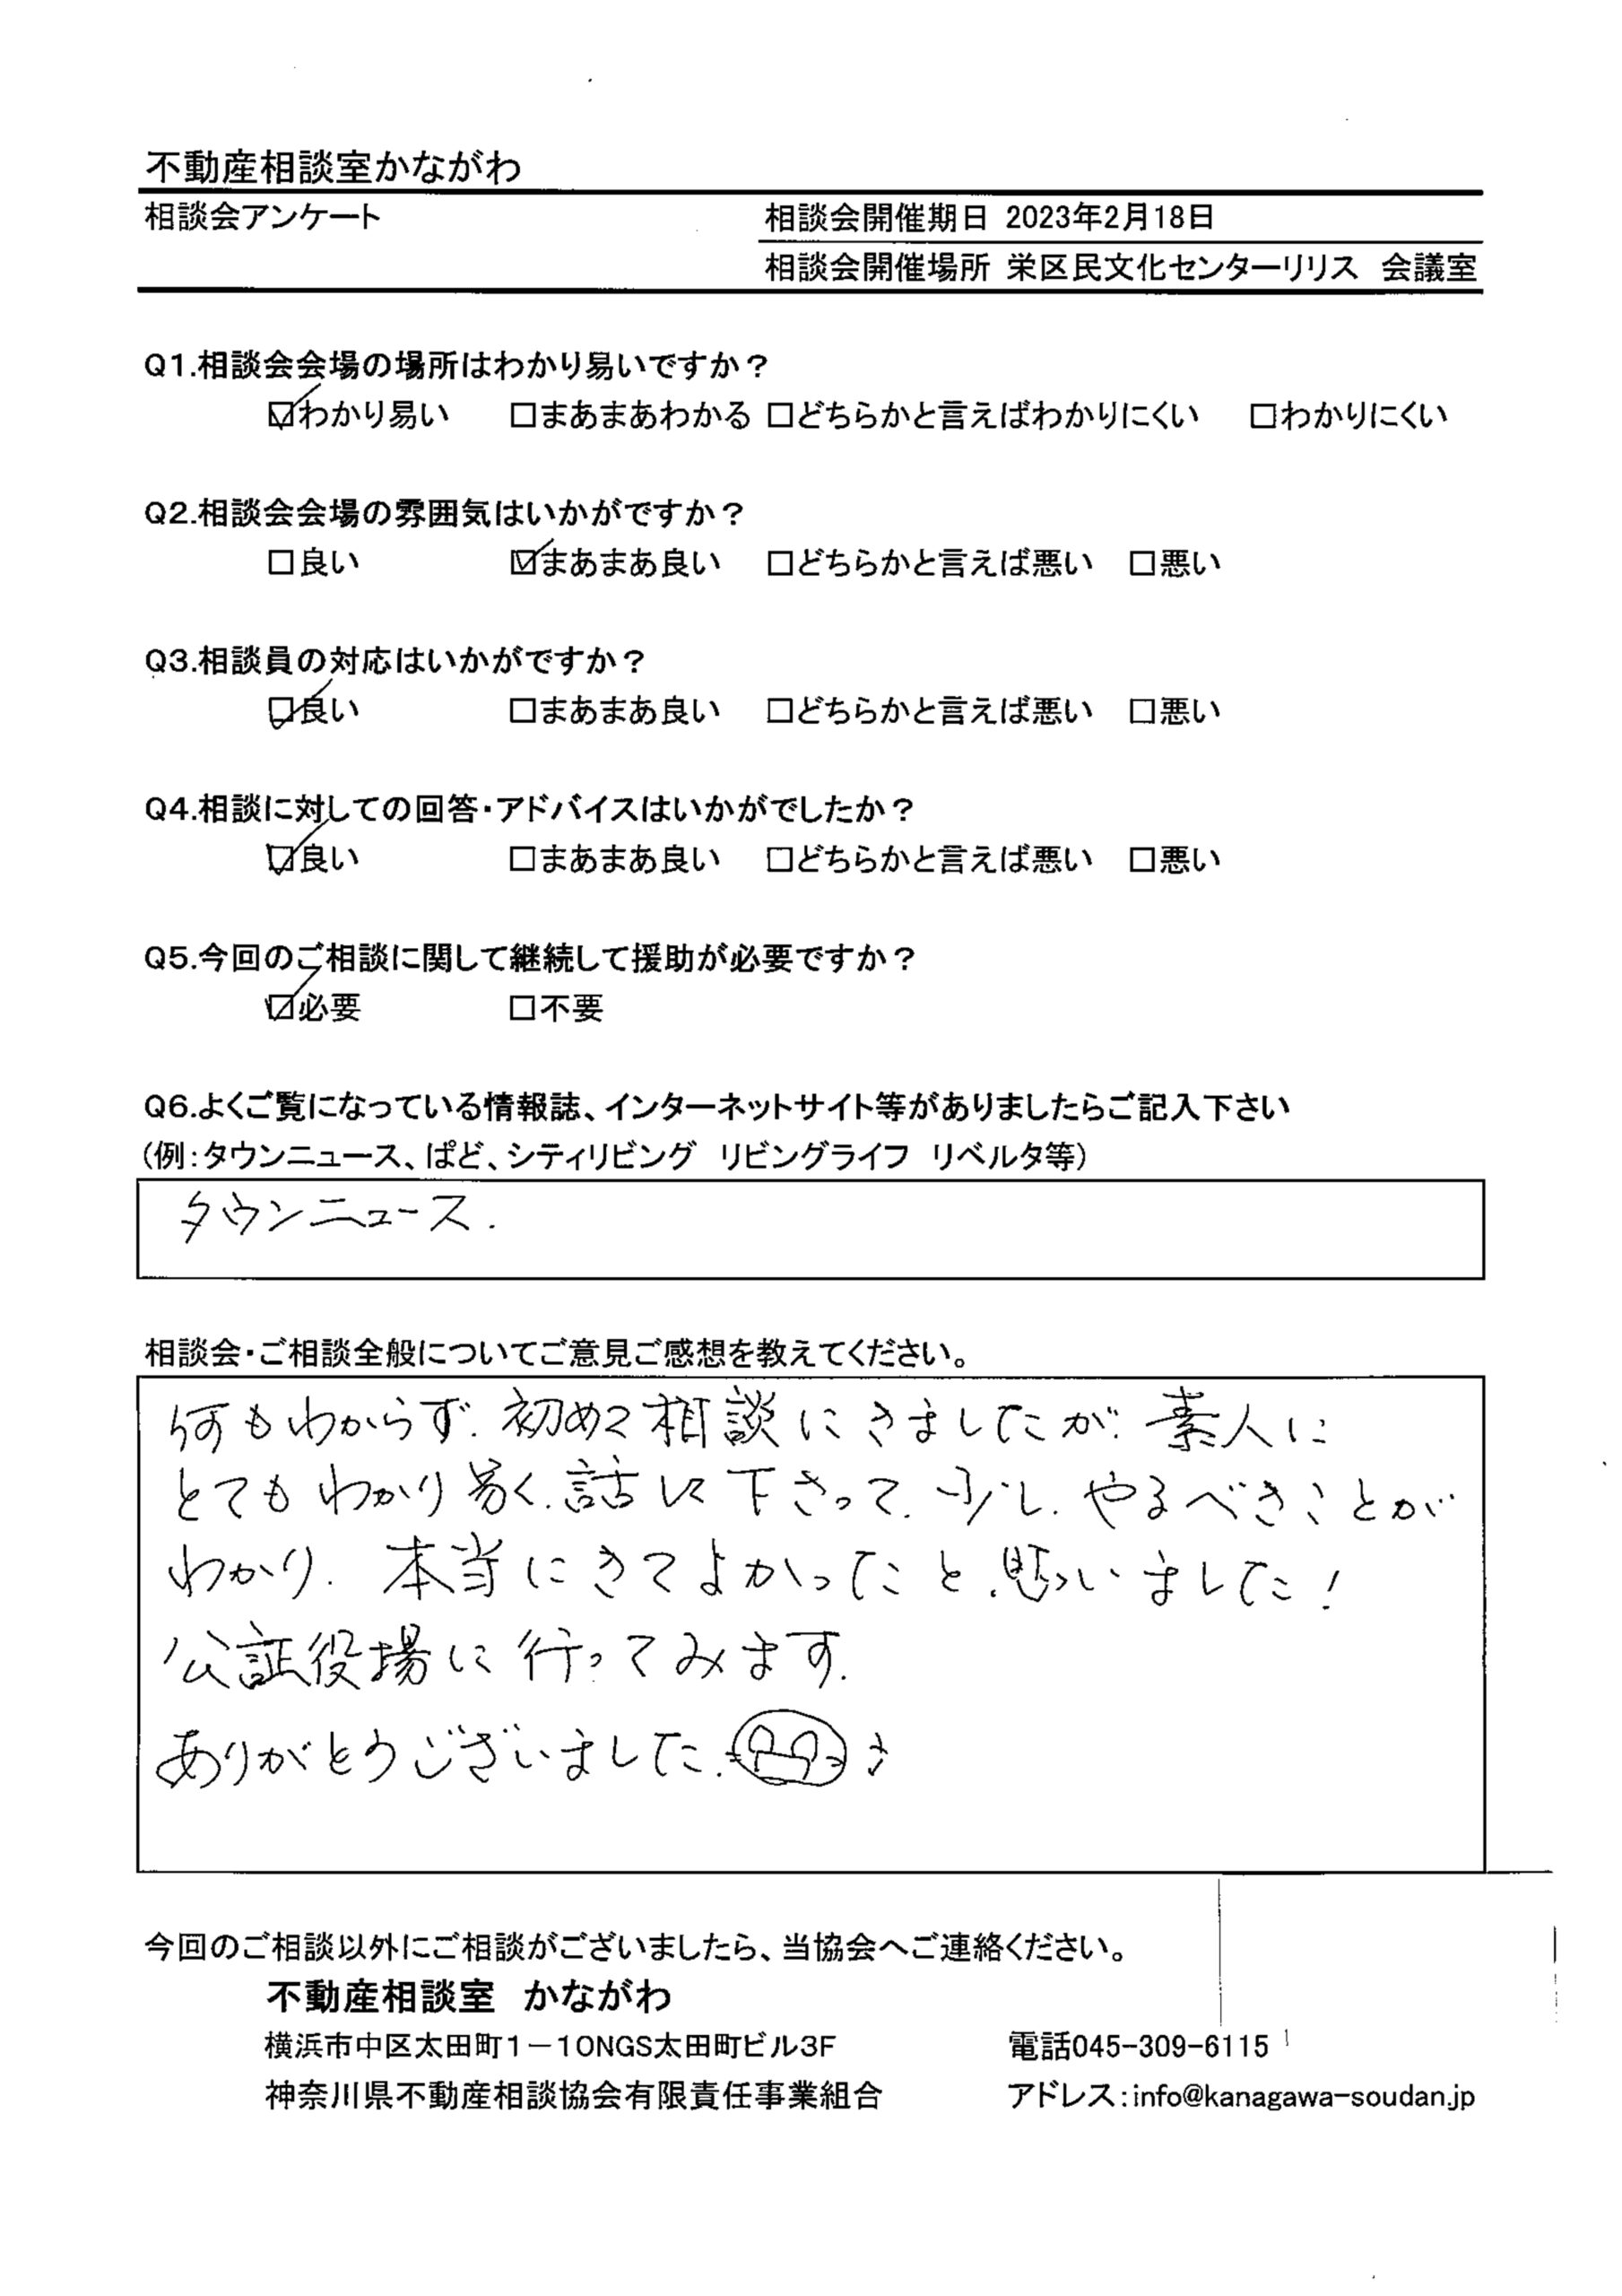 不動産相談室かながわ
相談会アンケート
相談会開催期日 2023年2月18日
相談会開催場所 栄区民文化センターリリス 会議室
Q1.相談会会場の場所はわかり易いですか？
☑わかり易い □まあまあわかる □どちらかと言えばわかりにくい □わかりにくい
Q2.相談会会場の雰囲気はいかがですか？
□良い ☑まあまあ良い □どちらかと言えば悪い □悪い
Q3.相談員の対応はいかがですか？
☑良い □まあまあ良い □どちらかと言えば悪い □悪い
Q4.相談に対しての回答・アドバイスはいかがでしたか？
☑良い □まあまあ良い □どちらかと言えば悪い □悪い
Q5.今回のご相談に関して継続して援助が必要ですか？
☑必要 □不要
Q6.よくご覧になっている情報誌、インターネットサイト等がありましたらご記入下さい
（例：タウンニュース、ぱど、シティリビング リビングライフ リベルタ等）
タウンニュース.
相談会・ご相談全般についてご意見ご感想を教えてください。
何もわからず.初めて相談にきましたが.素人に
とてもわかり易く.話して下さって.少し.やるべきことが
わかり.本当にきてよかったと.思いました!
公証役場に行ってみます.
ありがとうございました.
今回のご相談以外にご相談がございましたら、当協会へご連絡ください。
不動産相談室 かながわ
横浜市中区太田町1－10NGS太田町ビル3F
電話045-309-6115
神奈川県不動産相談協会有限責任事業組合
アドレス：info@kanagawa-soudan.jp